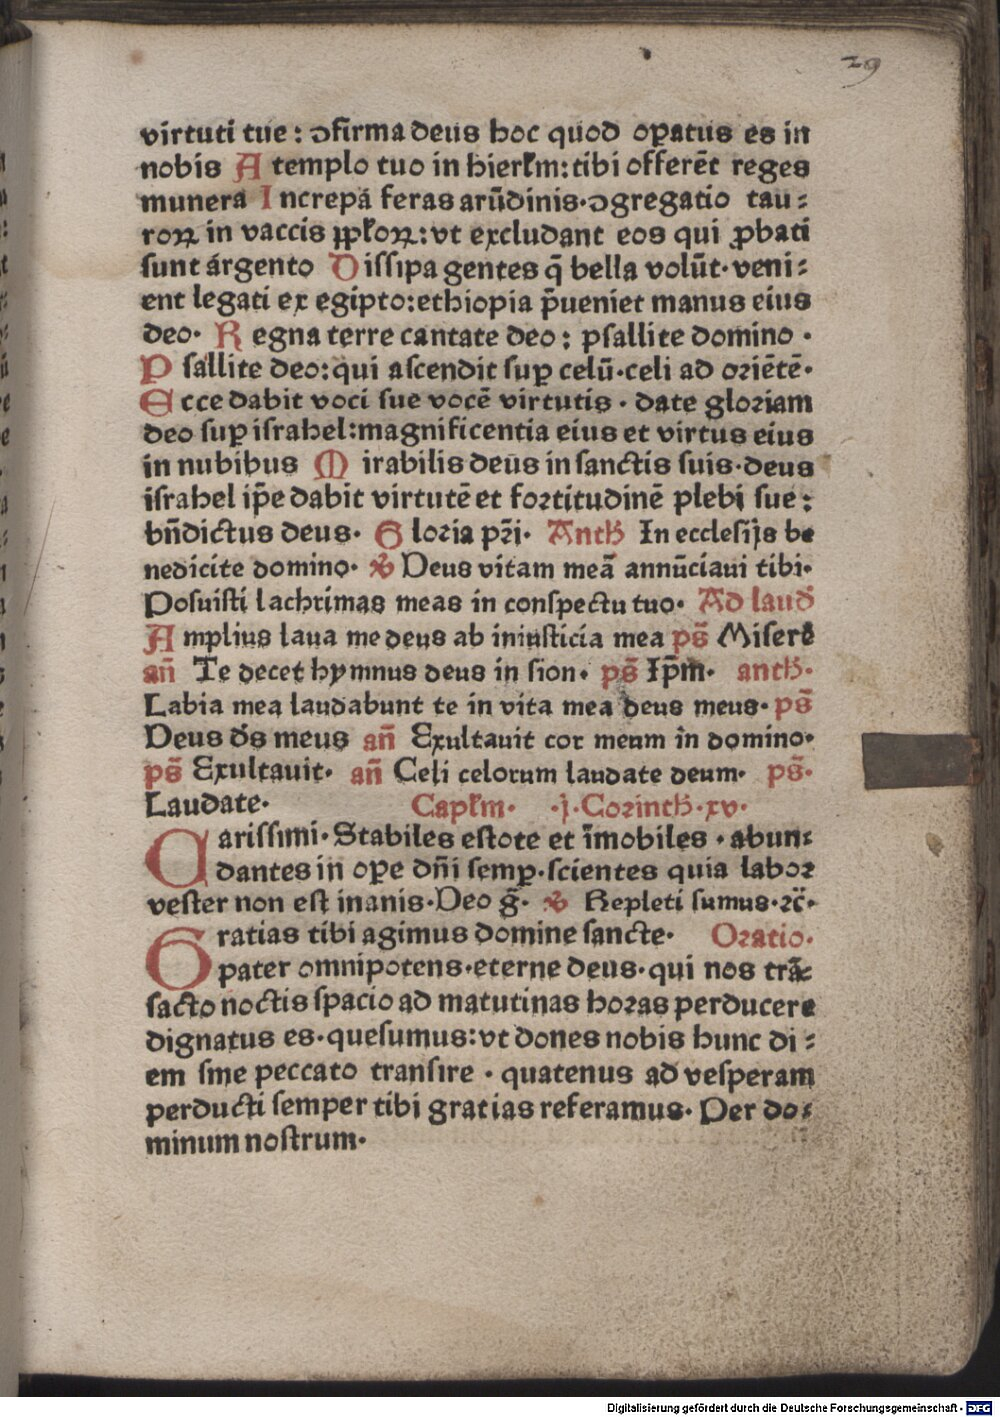 29
virtuti tue : ↄfirma deus hoc quod oꝑatus es in
nobis A templo tuo in hierłm: tibi offerēt reges
munera Increpa feras arūdinis·ↄgregatio tau⸗
roꝝ in vaccis pp̄łoꝝ: vt excludant eos qui ꝓbati
sunt argento Dissipa gentes q̄ bella volūt·veni⸗
ent legati ex egipto:ethiopia p̄ueniet manus eius
deo· Regna terre cantate deo : psallite domino ·
Psallite deo:qui ascendit suꝑ celū·celi ad oriētē·
Ecce dabit voci sue vocē virtutis · date gloriam
deo suꝑ israhel:magnificentia eius et virtus eius
in nubibus Mirabilis deus in sanctis suis·deus
israhel ip̄e dabit virtutē et fortitudinē plebi sue :
bn̄dictus deus· Gloria pr̄i· Anth̄ In ecclesijs be
nedicite domino· ℣ Deus vitam meā annūciaui tibi·
Posuisti lachrimas meas in conspectu tuo· Ad laud̄
Amplius laua me deus ab iniusticia mea ps̄ Miserē
an̄ Te decet hymnus deus in sion· ps̄ Ip̄m· anth̄·
Labia mea laudabunt te in vita mea deus meus· ps̄
Deus d̄s meus an̄ Exultauit cor meum in domino·
ps̄ Exultauit· an̄ Celi celorum laudate deum· ps̄·
Laudate· Capłm· ·j·Corinth̄·xv·
Carissimi·Stabiles estote et īmobiles · abun⸗
dantes in oꝑe dn̄i semꝑ·scientes quia labor
vester non est inanis·Deo g̃· ℣ Repleti sumus·ꝛc̄·
Gratias tibi agimus domine sancte· Oratio·
pater omnipotens·eterne deus·qui nos trā⸗
sacto noctis spacio ad matutinas horas perducere
dignatus es·quesumus:vt dones nobis hunc di⸗
em sine peccato transire · quatenus ad vesperam
perducti semper tibi gratias referamus· Per do⸗
minum nostrum·
Digitalisierung gefördert durch die Deutsche Forschungsgemeinschaft - DFG